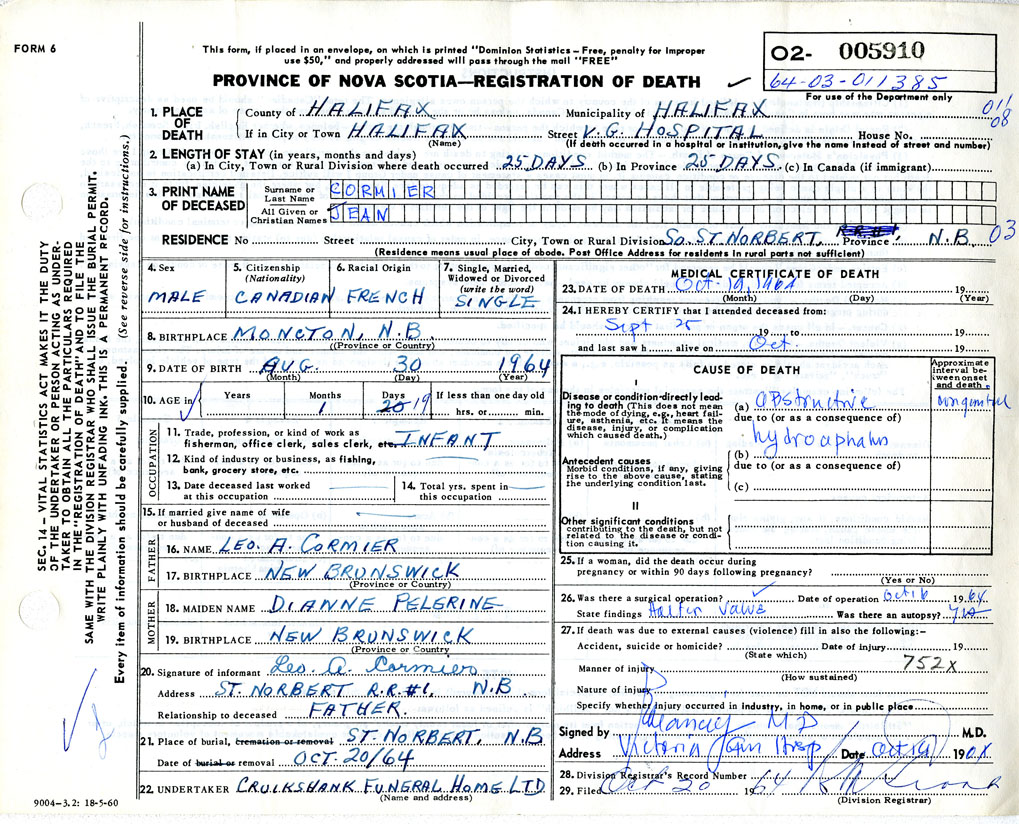 FORM 6
This form, if placed in an envelope, on which is printed "Dominion Statistics – Free, penalty for improper
use $50," and properly addressed will pass through the mail "FREE"
PROVINCE OF NOVA SCOTIA—REGISTRATION OF DEATH
02- 005910
64-03-011385
For use of the Department only
011
08
1. PLACE OF DEATH
County of HALIFAX Municipality of HALIFAX
If in City or Town HALIFAX Street V.G. HOSPITAL House No.
(Name) (If death occurred in a hospital or institution, give the name instead of street and number)
2. LENGTH OF STAY (in years, months and days)
(a) In City, Town or Rural Division where death occurred 25 DAYS (b) In Province 25 DAYS (c) In Canada (if immigrant)
3. PRINT NAME OF DECEASED
Surname or Last Name CORMIER
All Given or Christian Names JEAN
RESIDENCE No Street City, Town or Rural Division SO. ST NORBERT, R.R.#1, Province N.B. 03
(Residence means usual place of abode. Post Office Address for residents in rural parts not sufficient)
4. Sex
MALE
5. Citizenship
(Nationality)
CANADIAN
6. Racial Origin
FRENCH
7. Single, Married,
Widowed or Divorced
(write the word)
SINGLE
8. BIRTHPLACE MONCTON, N.B.
(Province or Country)
9. DATE OF BIRTH AUG. 30 1964
(Month) (Day) (Year)
10. AGE in Years Months Days If less than one day
1 20 19 hrs. or min.
OCCUPATION
11. Trade, profession, or kind of work as
fisherman, office clerk, sales clerk, etc. INFANT
12. Kind of industry or business, as fishing,
bank, grocery store, etc.
13. Date deceased last worked
at this occupation
14. Total yrs. spent in
this occupation
15. If married give name of wife
or husband of deceased
FATHER
16. NAME LEO. A. CORMIER
17. BIRTHPLACE NEW BRUNSWICK
(Province or Country)
MOTHER
18. MAIDEN NAME DIANNE PELERINE
19. BIRTHPLACE NEW BRUNSWICK
(Province or Country
20. Signature of informant Leo. A. Cormier
Address ST. NORBERT R.R.#1, N.B
Relationship to deceased FATHER.
21. Place of burial, cremation or removal ST. NORBERT, N.B
Date of burial or removal OCT. 20/64
22. UNDERTAKER CRUIKSHANK FUNERAL HOME LTD
(Name and address)
9004-3.2: 18-5-60
MEDICAL CERTIFICATE OF DEATH
23. DATE OF DEATH Oct. 19, 1964 19
(Month) (Day) (Year)
24. I HEREBY CERTIFY that I attended deceased from:
Sept 25 19 to 19
and last saw h alive on Oct. 19
CAUSE OF DEATH
Approximate
interval be-
tween onset
and death.
I
Disease or condition directly lead-
ing to death (This does not mean
the mode of dying, e.g., heart fail-
ure, asthenia, etc. It means the
disease, injury, or complication
which caused death.)
(a) obstructive congenital
due to (or as a consequence of)
hydrocephalus
Antecedent causes
Morbid conditions, if any, giving
rise to the above cause, stating
the underlying condition last.
(b)
due to (or as a consequence of)
(c)
II
Other significant conditions
contributing to the death, but not
related to the disease or condi-
tion causing it.
25. If a woman, did the death occur during
pregnancy or within 90 days following pregnancy?
(Yes or No)
26. Was there a surgical operation? Date of operation Oct 16 1964
State findings Halter Valve Was there an autopsy?
27. If death was due to external causes (violence) fill in also the following:–
Accident, suicide or homicide? Date of injury 19
(State which)
Manner of injury 752X
(How sustained)
Nature of injury
Specify whether injury occurred in industry, in home, or in public place
Signed by MD M.D.
Address Victoria Gen Hosp Date Oct 19 19
28. Division Registrar's Record Number
29. Filed Oct 20 1964
(Division Registrar)
SEC. 14 – VITAL STATISTICS ACT MAKES IT THE DUTY
OF THE UNDERTAKER OR PERSON ACTING AS UNDER-
TAKER TO OBTAIN ALL THE PARTICULARS REQUIRED
IN THE "REGISTRATION OF DEATH" AND TO FILE THE
SAME WITH THE DIVISION REGISTRAR WHO SHALL ISSUE THE BURIAL PERMIT.
WRITE PLAINLY WITH UNFADING INK. THIS IS A PERMANENT RECORD.
Every item of information should be carefully supplied. (See reverse side for instructions.)